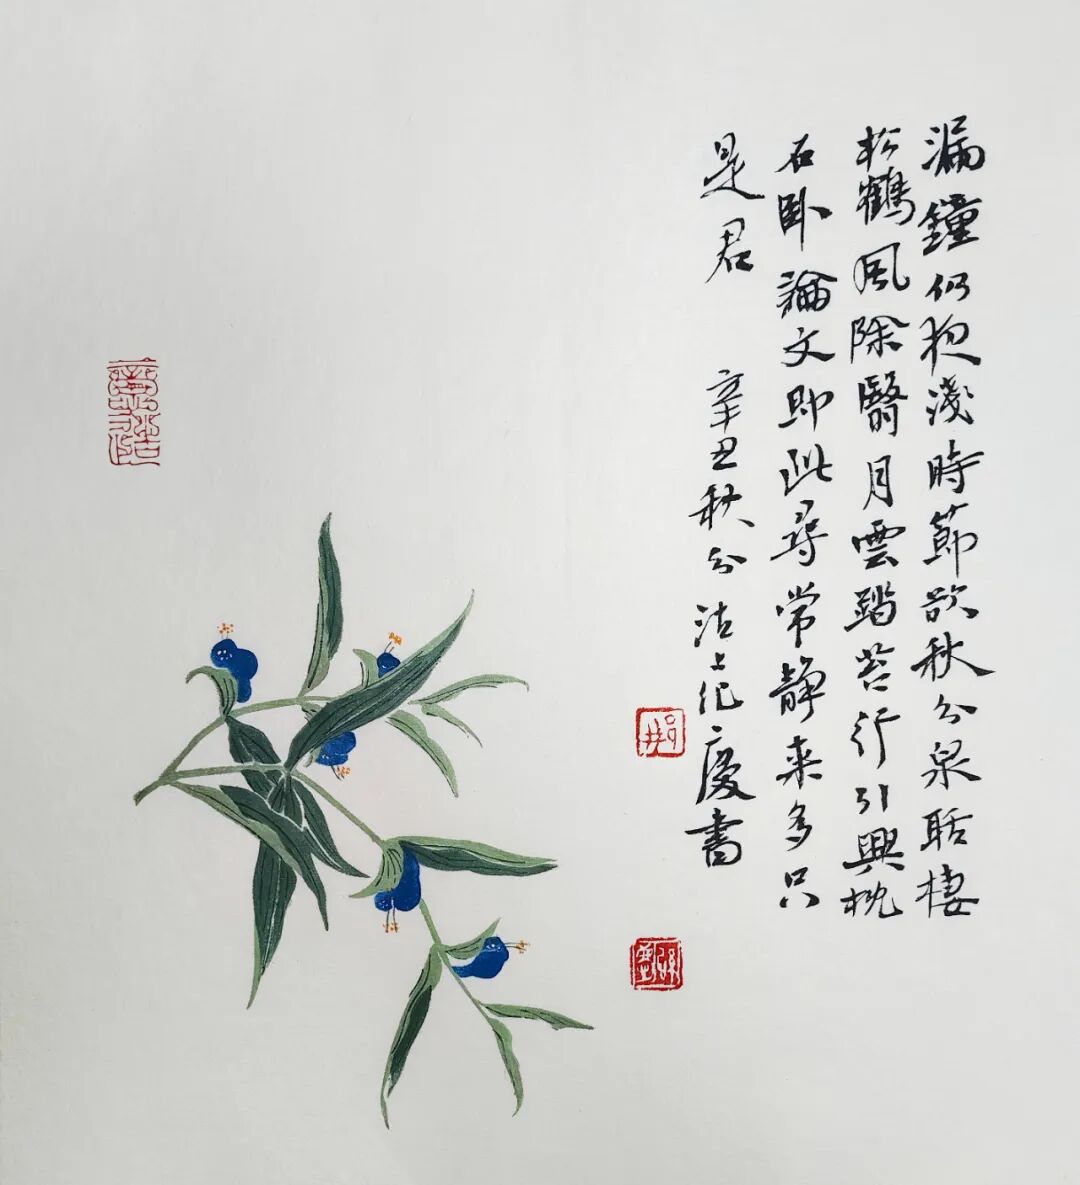 漏鐘仍夜淺時節欲秋分泉聒棲
松鶴風除翳月雲踏苔行引興枕
石卧論文即此尋常靜来多只
是君 辛丑秋分沽上慶書